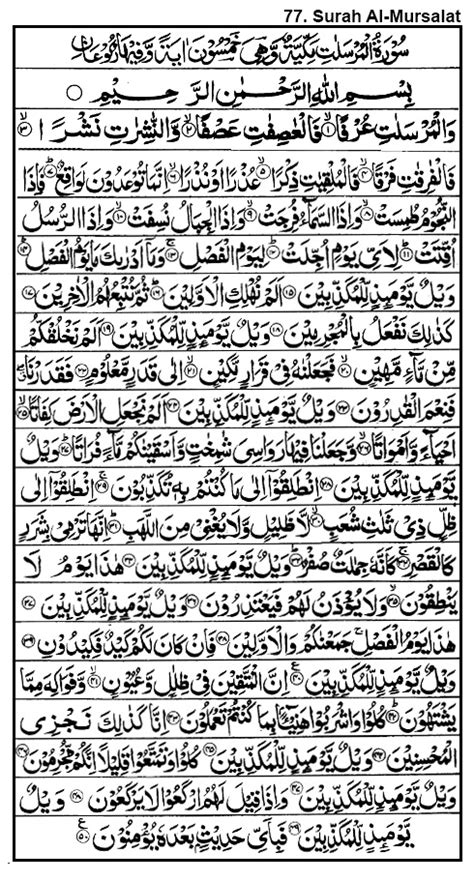 77. Surah Al-Mursalat
سُوْرَةُ الْمُرْسَلٰتِ مَكِّيَّةٌ وَّهِىَ خَمْسُوْنَ اٰيَةً وَّفِيْهَا رُكُوْعَانِ
بِسْمِ اللهِ الرَّحْمٰنِ الرَّحِيْمِ ○
وَالْمُرْسَلٰتِ عُرْفًا ۱ فَالْعٰصِفٰتِ عَصْفًا ۲ وَّالنّٰشِرٰتِ نَشْرًا ۳
فَالْفٰرِقٰتِ فَرْقًا ۴ فَالْمُلْقِيٰتِ ذِكْرًا ۵ عُذْرًا اَوْ نُذْرًا ۶ اِنَّمَا تُوْعَدُوْنَ لَوَاقِعٌ ۷ فَاِذَا
النُّجُوْمُ طُمِسَتْ ۸ وَاِذَا السَّمَآءُ فُرِجَتْ ۹ وَاِذَا الْجِبَالُ نُسِفَتْ ۱۰ وَاِذَا الرُّسُلُ
اُقِّتَتْ ۱۱ لِاَىِّ يَوْمٍ اُجِّلَتْ ۱۲ لِيَوْمِ الْفَصْلِ ۱۳ وَمَآ اَدْرٰىكَ مَا يَوْمُ الْفَصْلِ ۱۴
وَيْلٌ يَّوْمَئِذٍ لِّلْمُكَذِّبِيْنَ ۱۵ اَلَمْ نُهْلِكِ الْاَوَّلِيْنَ ۱۶ ثُمَّ نُتْبِعُهُمُ الْاٰخِرِيْنَ ۱۷
كَذٰلِكَ نَفْعَلُ بِالْمُجْرِمِيْنَ ۱۸ وَيْلٌ يَّوْمَئِذٍ لِّلْمُكَذِّبِيْنَ ۱۹ اَلَمْ نَخْلُقْكُّمْ
مِّنْ مَّآءٍ مَّهِيْنٍ ۲۰ فَجَعَلْنٰهُ فِىْ قَرَارٍ مَّكِيْنٍ ۲۱ اِلٰى قَدَرٍ مَّعْلُوْمٍ ۲۲ فَقَدَرْنَا
فَنِعْمَ الْقٰدِرُوْنَ ۲۳ وَيْلٌ يَّوْمَئِذٍ لِّلْمُكَذِّبِيْنَ ۲۴ اَلَمْ نَجْعَلِ الْاَرْضَ كِفَاتًا ۲۵
اَحْيَآءً وَّاَمْوَاتًا ۲۶ وَّجَعَلْنَا فِيْهَا رَوَاسِىَ شٰمِخٰتٍ وَّاَسْقَيْنٰكُمْ مَّآءً فُرَاتًا ۲۷ وَيْلٌ
يَّوْمَئِذٍ لِّلْمُكَذِّبِيْنَ ۲۸ اِنْطَلِقُوْٓا اِلٰى مَا كُنْتُمْ بِهٖ تُكَذِّبُوْنَ ۲۹ اِنْطَلِقُوْٓا اِلٰى
ظِلٍّ ذِىْ ثَلٰثِ شُعَبٍ ۳۰ لَّا ظَلِيْلٍ وَّلَا يُغْنِىْ مِنَ اللَّهَبِ ۳۱ اِنَّهَا تَرْمِىْ بِشَرَرٍ
كَالْقَصْرِ ۳۲ كَاَنَّهٗ جِمٰلَتٌ صُفْرٌ ۳۳ وَيْلٌ يَّوْمَئِذٍ لِّلْمُكَذِّبِيْنَ ۳۴ هٰذَا يَوْمُ لَا
يَنْطِقُوْنَ ۳۵ وَلَا يُؤْذَنُ لَهُمْ فَيَعْتَذِرُوْنَ ۳۶ وَيْلٌ يَّوْمَئِذٍ لِّلْمُكَذِّبِيْنَ ۳۷
هٰذَا يَوْمُ الْفَصْلِ جَمَعْنٰكُمْ وَالْاَوَّلِيْنَ ۳۸ فَاِنْ كَانَ لَكُمْ كَيْدٌ فَكِيْدُوْنِ ۳۹
وَيْلٌ يَّوْمَئِذٍ لِّلْمُكَذِّبِيْنَ ۴۰ اِنَّ الْمُتَّقِيْنَ فِىْ ظِلٰلٍ وَّعُيُوْنٍ ۴۱ وَّفَوَاكِهَ مِمَّا
يَشْتَهُوْنَ ۴۲ كُلُوْا وَاشْرَبُوْا هَنِيْٓئًا بِمَا كُنْتُمْ تَعْمَلُوْنَ ۴۳ اِنَّا كَذٰلِكَ نَجْزِى
الْمُحْسِنِيْنَ ۴۴ وَيْلٌ يَّوْمَئِذٍ لِّلْمُكَذِّبِيْنَ ۴۵ كُلُوْا وَتَمَتَّعُوْا قَلِيْلًا اِنَّكُمْ مُّجْرِمُوْنَ ۴۶
وَيْلٌ يَّوْمَئِذٍ لِّلْمُكَذِّبِيْنَ ۴۷ وَاِذَا قِيْلَ لَهُمُ ارْكَعُوْا لَا يَرْكَعُوْنَ ۴۸ وَيْلٌ
يَّوْمَئِذٍ لِّلْمُكَذِّبِيْنَ ۴۹ فَبِاَىِّ حَدِيْثٍۭ بَعْدَهٗ يُؤْمِنُوْنَ ۵۰ ع